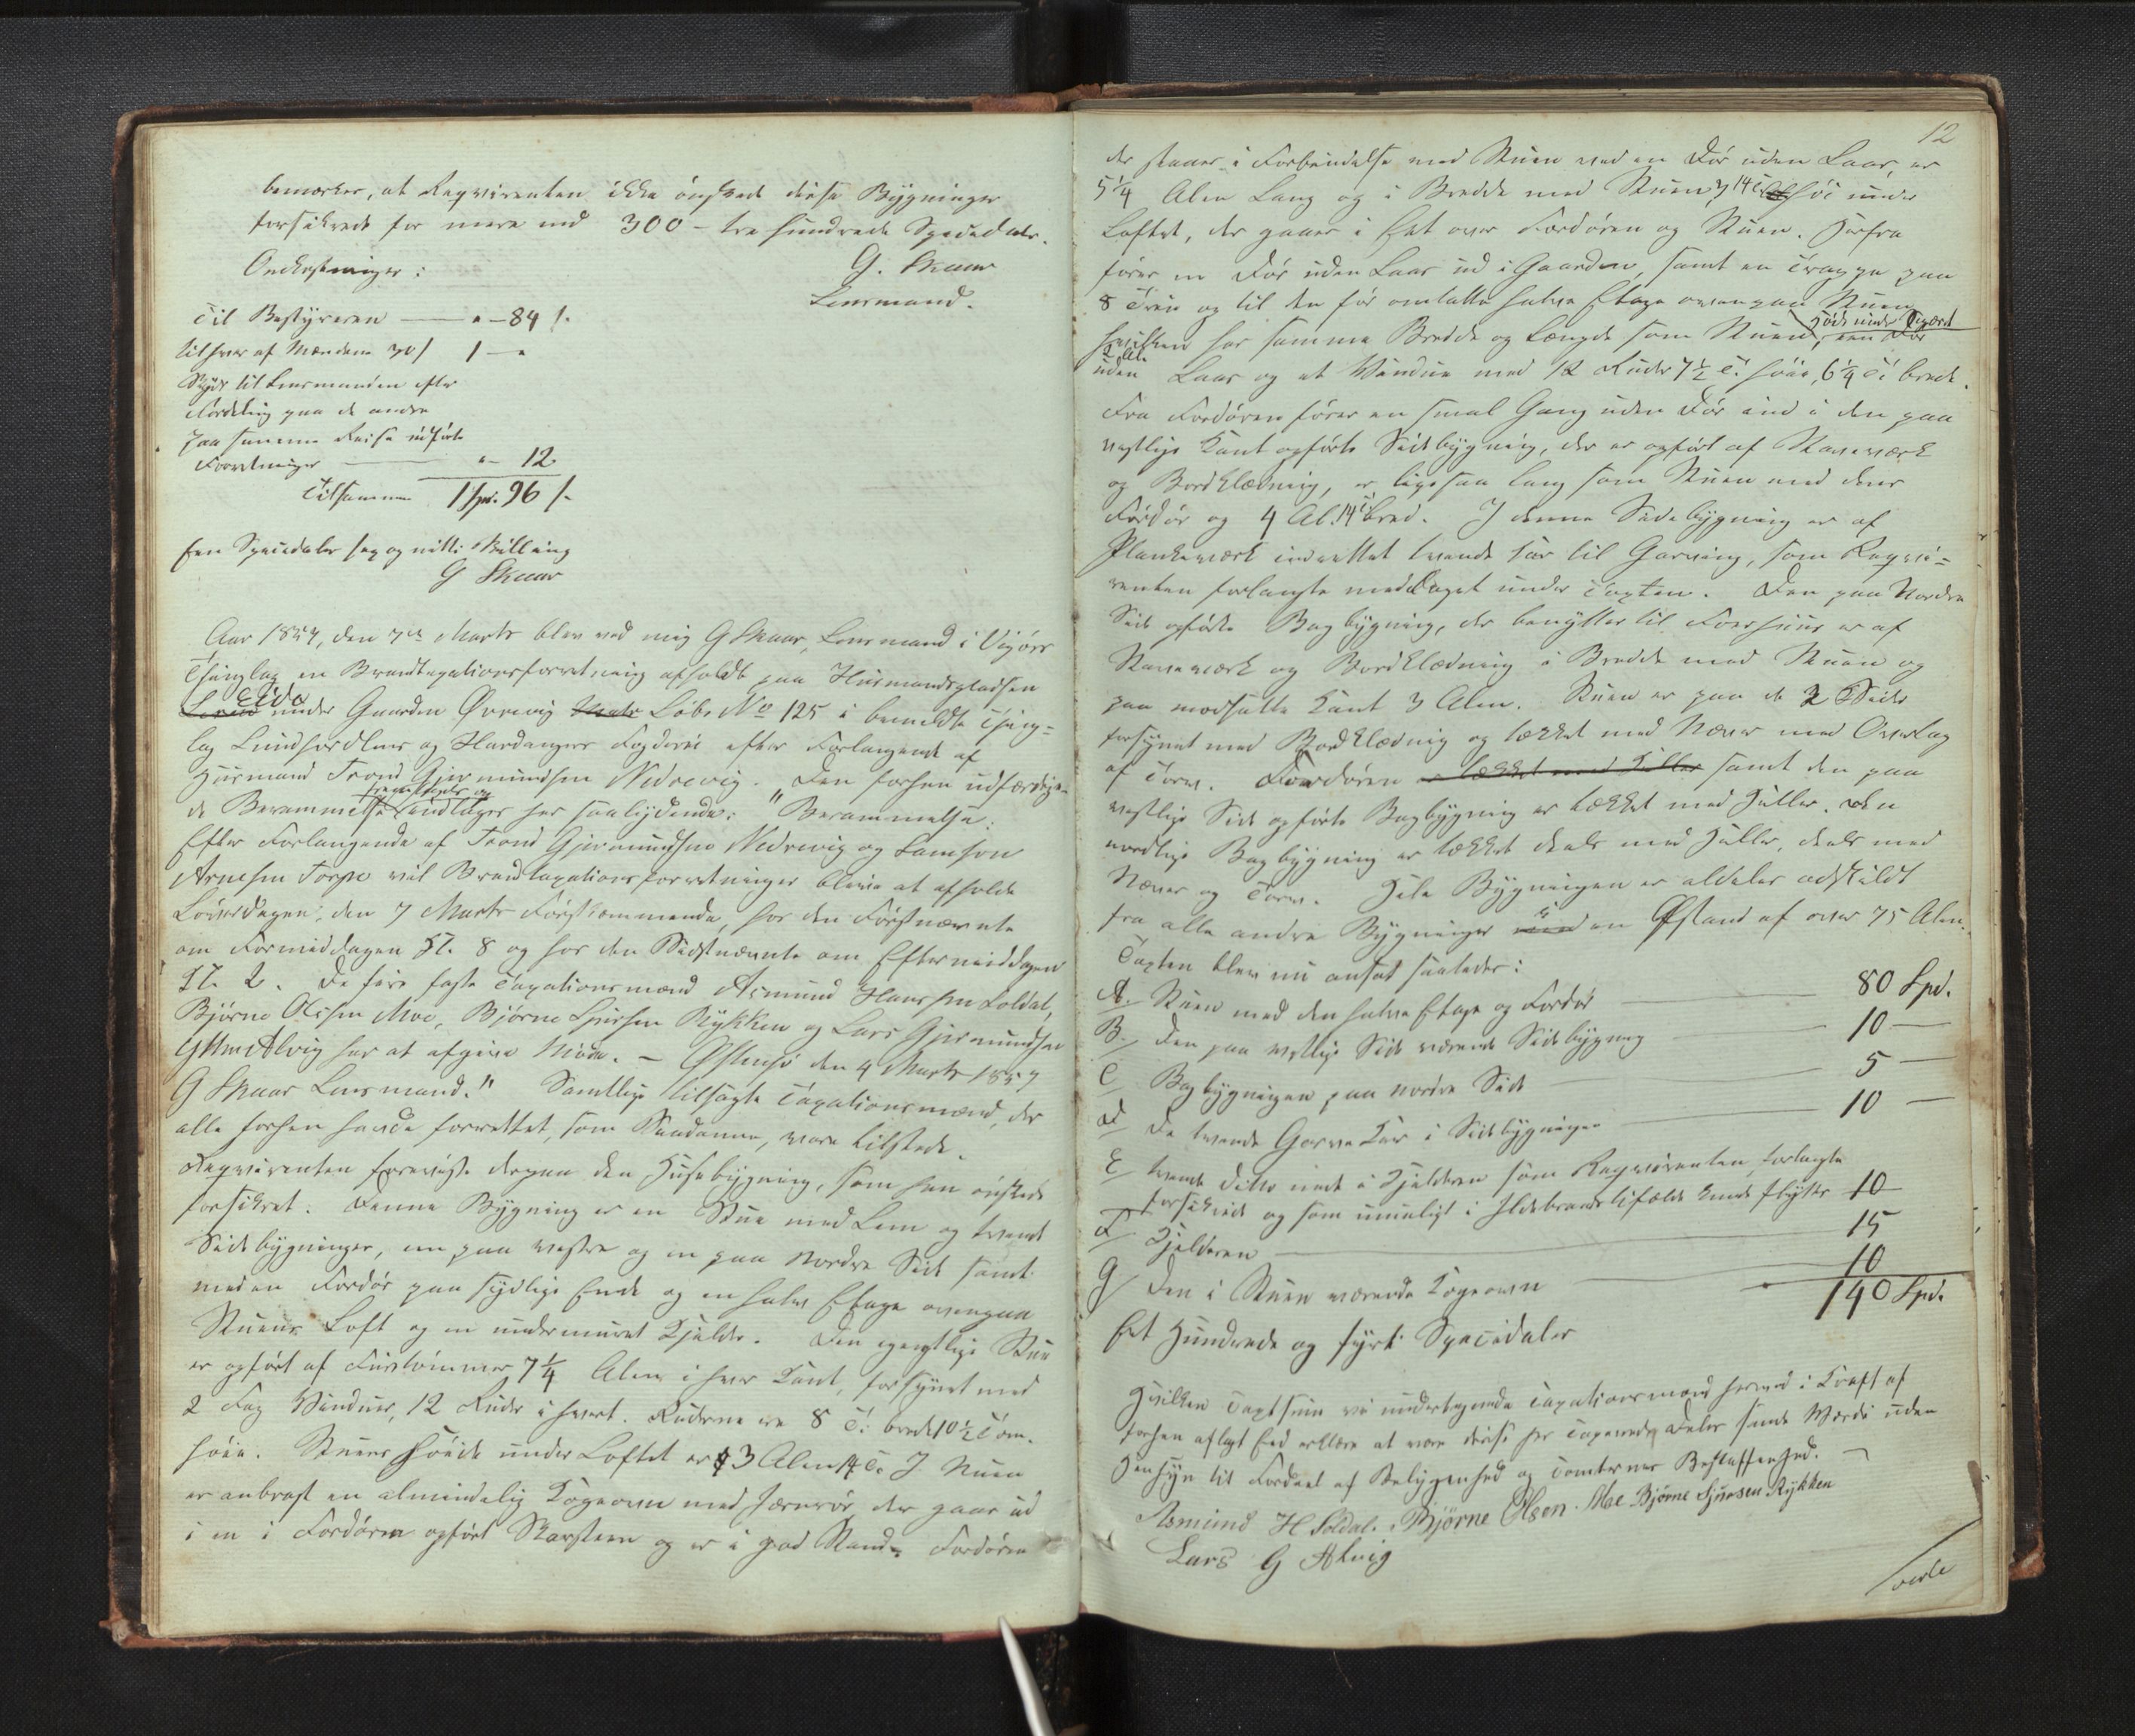 bemærkes, at Reqvirenten ikke ønskede disse Bygninger
forsikrede for mere end 300 - tre hundrede Speciedaler.
G. Skaar
Lensmand.
Omkostninger:
Til Bestyreren — " - 84 s.
til hver af Mændene 30 s 1 — "
Skyds til Lensmanden efter
Fordeling paa de andre
paa samme Reise udførte
Forretninger — " - 12
Tilsammen 1 Spd. 96 s.
Een Speciedaler sex og nitti Skilling
G Skaar
Aar 1857, den 7de Marts blev ved mig G Skaar, Lensmand i Vigørs
Thinglag en Brandtaxationsforretning afholdt paa Huusmandspladsen
under Gaarden Øvrevig Matr Løbe No 125 i bemeldte Thing=
lag Sundhordlens og Hardangers Fogderi efter Forlangende af
Huusmand Trond Gjermundsen Nedrevig. Den forhen udfærdige-
de Berammelse fremlagdes og indtages her saalydende: "Berammelse:
Efter Forlangende af Trond Gjermundsen Nedrevig og Samson
Arnesen Torpe vil Brandtaxationsforretninger blive at afholde
Løverdagen, den 7 Marts førstkommende, hos den Førstnævnte
om Formiddagen Kl. 8 og hos den Sidstnævnte om Eftermiddagen
Kl. 2. De fire faste Taxationsmænd Asmund Hansen Soldal,
Bjørne Olsen Moe, Bjørne Sjursen Rykken og Lars Gjermundsen
Alvig har at afgive Møde. - Østensø den 4 Marts 1857
G Skaar Lensmand." Samtlige tilsagte Taxationsmænd, der
alle forhen havde forrettet, som Saadanne, vare tilstede.
Reqvirenten foreviste derpaa den Husebygning, som han ønskede
forsikret. Denne Bygning er en Stue med Lem og tvende
Sidebygninger, een paa vestre og en paa Nordre Side samt
med en Fordør paa sydlige Ende og en halv Etage ovenpaa
Stuens Loft og en undermuret Kjelder. Den egentlige Stue
er opført af Furetømmer 7¼ Alen i hver Kant, forsynet med
2 Fag Vinduer, 12 Ruder i hvert. Ruderne ere 8 T. brede 10½ Tom.
høie. Stuens Høide under Loftet er 3 Alen 14 T. I Stuen
er anbragt en almindelig Kogeovn med Jernrør, der gaar ud
i en i Fordøren opført Skorsteen og er i god Stand. Fordøren
12
der staaer i Forbindelse med Stuen ved en Dør uden Laas, er
5¼ Alen Lang og i Bredde med Stuen, 3 14 T høi under
Loftet, der gaaer i Eet over Fordøren og Stuen. Herfra
fører en Dør uden Laas ud i Gaarden, samt en Trappe paa
8 Trin op til den før omtalte halve Etage ovenpaa Stuen,
hvilken har samme Bredde og Længde som Stuen, Høide under 2 Al. een Dør
uden Laas og et Vindue med 12 Ruder 7½ T. høie, 6¼ T. brede.
Fra Fordøren fører en smal Gang uden Dør ind i den paa
vestlige Kant opførte Sidebygning, der er opført af Stavværk
og Bordklædning, er ligesaa lang som Stuen med dens
Fordør og 4 Al. 14 T bred. I denne Sidebygning er af
Plankeværk indrettet tvende Kar til Garving, som Reqvi=
renten forlangte meddraget under Taxten. Den paa Nordre
Side opførte Bagbygning, der benyttes til Foerhuus er af
Stavværk og Bordklædning i Bredde med Stuen og
paa modsatte Kant 3 Alen. Stuen er paa de 2 Sider
forsynet med Bordklædning og tækket med Næver med Overlag
af Torv. Fordøren er tækket med Heller samt den paa
vestlige Side opførte Bagbygning er tækket med Heller. Den
nordlige Bagbygning er tækket deels med Heller, deels med
Næver og Torv. Hele Bygningen er aldeles adskildt
fra alle andre Bygninger i en Afstand af over 75 Alen.
Taxten blev nu ansat saaledes:
A. Stuen med den halve Etage og Fordør — 80 Spd.
B. den paa vestlige Side værende Sidebygning — 10 —
C Bagbygningen paa nordre Side — 5 —
D De tvende Garve Kar i Sidebygningen — 10 —
E tvende ditto nede i Kjelderen som Reqvirenten forlangte
forsikrede og som umuligt i Ildebrandstilfælde kunde flyttes 10
F Kjelderen — 15
G Den i Stuen værende Kogeovn — 10
140 Spd.
Eet Hundrede og fyrti Speciedaler
Hvilken Taxtsum vi undertegnede Taxationsmænd herved i Kraft af
forhen aflagt Eed erklære at være disse her taxerede Deles sande Værdi uden
Hensyn til Fordeel af Beliggenhed og Tomternes Beskaffenhed.
Asmund H Soldal. Bjørne Olsen Moe Bjørne Sjursen Rykken
Lars G Alvig
verte